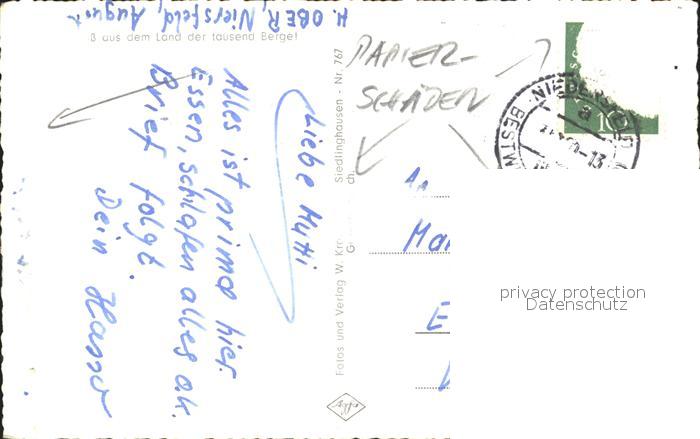 H. OBER, Niersfeld, August
ß aus dem Land der tausend Berge!
Liebe Mutti
Alles ist prima hier.
Essen, schlafen alles o.k.
Brief folgt.
Dein Hasso
Fotos und Verlag W. Kro
Siedlinghausen - Nr. 767
PAPIER-
SCHÄDEN
10
NIEDERSFELD
BESTW
a
-13
An
Ma
E
Agfa
privacy protection
Datenschutz